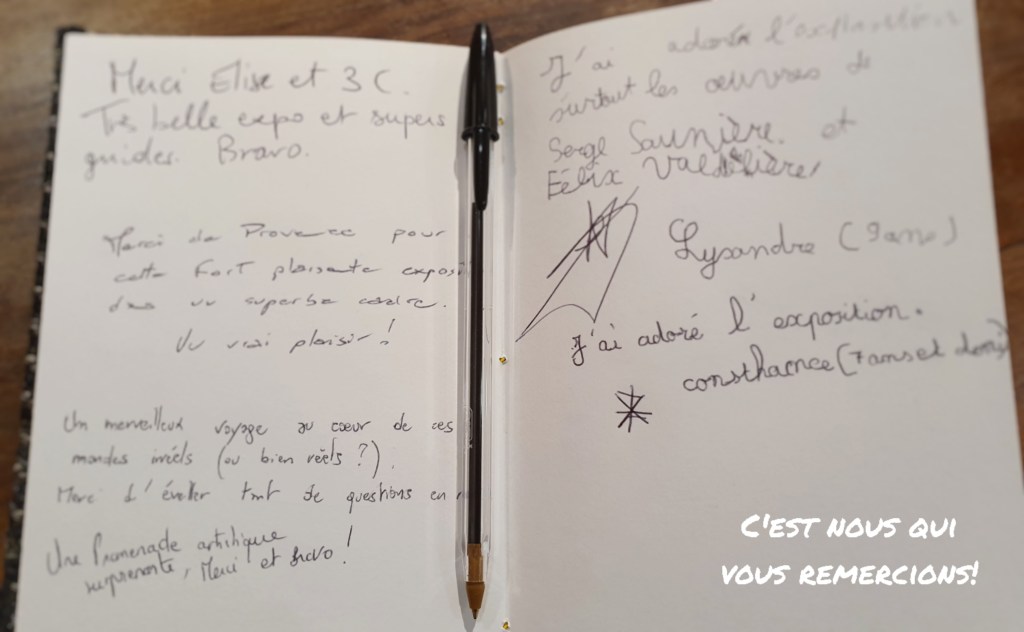 Merci Elise et 3 C.
Très belle expo et supers
guides. Bravo.
Merci de Provence pour
cette Fort plaisante exposi
dans un superbe cadre.
Un vrai plaisir!
Un merveilleux voyage au cœur de ces
mondes irréels (ou bien réels ?).
Merci d'éveiller tant de questions en
Une Promenade artistique
surprenante, Merci et bravo!
J'ai adoré l'exposition
surtout les œuvres de
Serge Saunière. et
Félix Valdelière
Lysandre (9 ans)
J'ai adoré l'exposition.
consthacnce (7 ans et demi)
C'EST NOUS QUI
VOUS REMERCIONS!